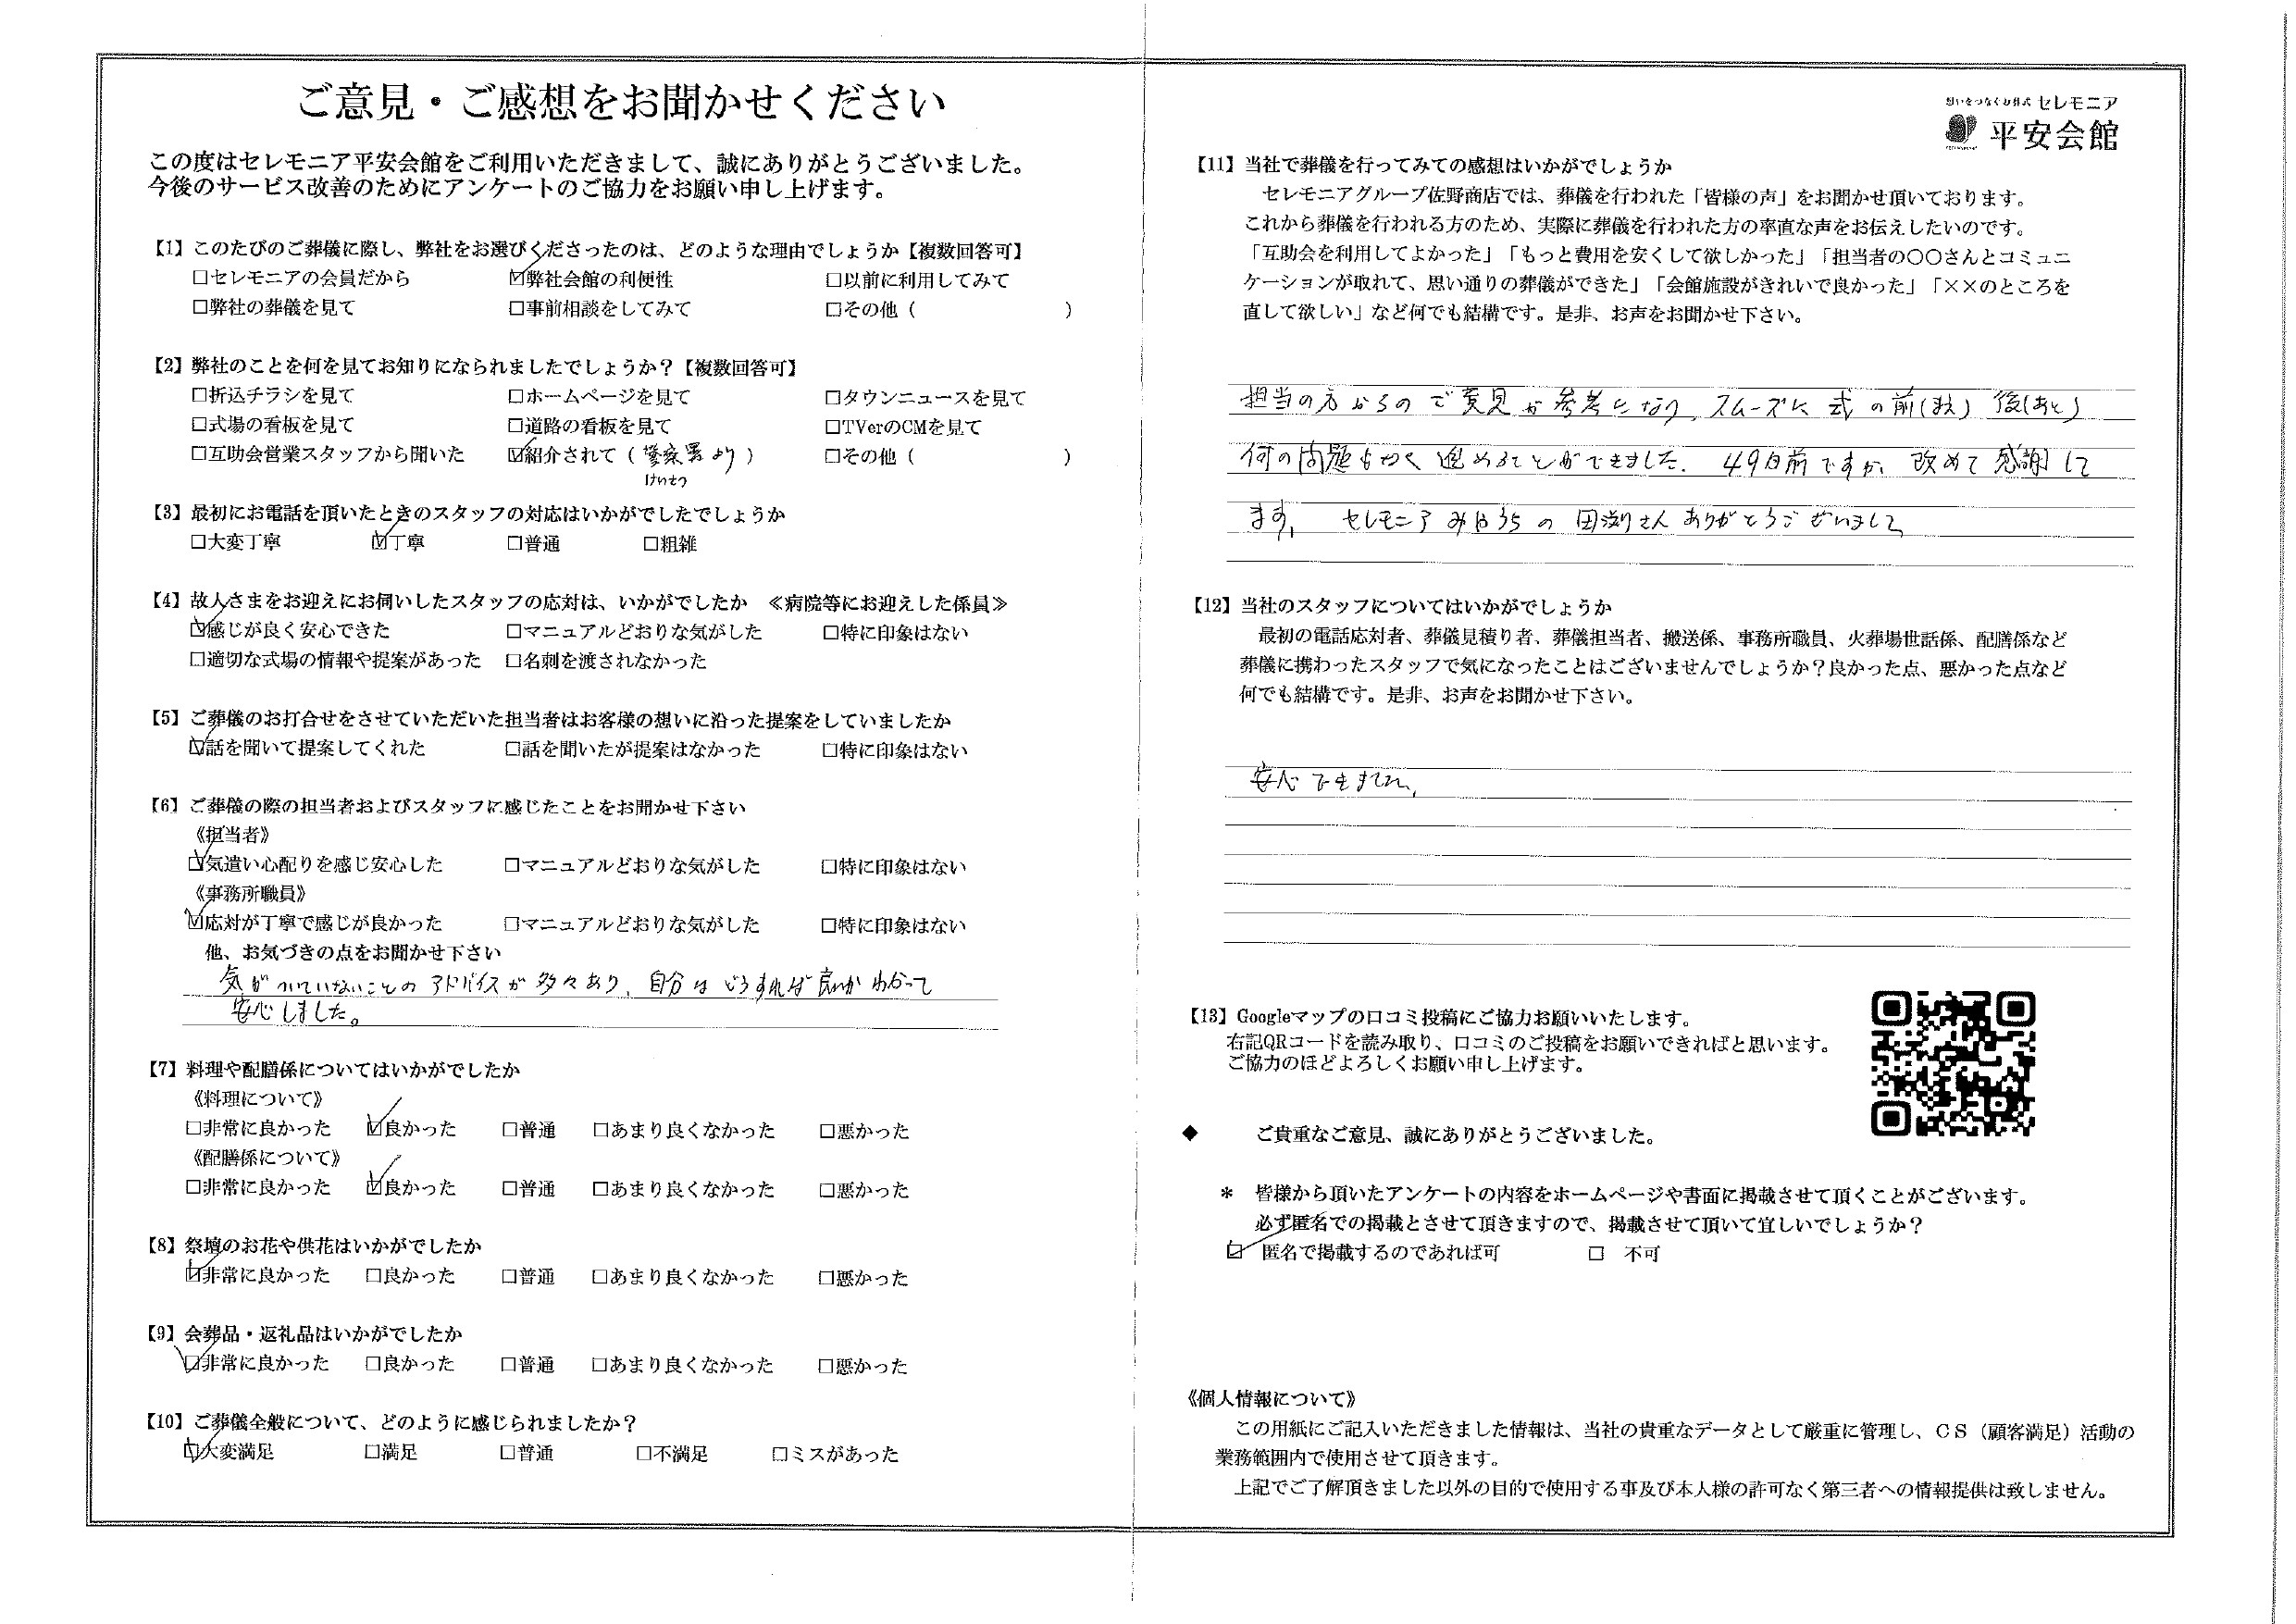 ご意見・ご感想をお聞かせください
この度はセレモニア平安会館をご利用いただきまして、誠にありがとうございました。
今後のサービス改善のためにアンケートのご協力をお願い申し上げます。
【1】このたびのご葬儀に際し、弊社をお選びくださったのは、どのような理由でしょうか【複数回答可】
□セレモニアの会員だから ☑弊社会館の利便性 □以前に利用してみて
□弊社の葬儀を見て □事前相談をしてみて □その他（ ）
【2】弊社のことを何を見てお知りになられましたでしょうか？【複数回答可】
□折込チラシを見て □ホームページを見て □タウンニュースを見て
□式場の看板を見て □道路の看板を見て □TVerのCMを見て
□互助会営業スタッフから聞いた ☑紹介されて（警察署より） □その他（ ）
けいさつ
【3】最初にお電話を頂いたときのスタッフの対応はいかがでしたでしょうか
□大変丁寧 ☑丁寧 □普通 □粗雑
【4】故人さまをお迎えにお伺いしたスタッフの応対は、いかがでしたか ≪病院等にお迎えした係員≫
☑感じが良く安心できた □マニュアルどおりな気がした □特に印象はない
□適切な式場の情報や提案があった □名刺を渡されなかった
【5】ご葬儀のお打合せをさせていただいた担当者はお客様の想いに沿った提案をしていましたか
☑話を聞いて提案してくれた □話を聞いたが提案はなかった □特に印象はない
【6】ご葬儀の際の担当者およびスタッフに感じたことをお聞かせ下さい
《担当者》
☑気遣い心配りを感じ安心した □マニュアルどおりな気がした □特に印象はない
《事務所職員》
☑応対が丁寧で感じが良かった □マニュアルどおりな気がした □特に印象はない
他、お気づきの点をお聞かせ下さい
気がついていないことのアドバイスが多々あり、自分はどうすれば良いかわかって
安心しました。
【7】料理や配膳係についてはいかがでしたか
《料理について》
□非常に良かった ☑良かった □普通 □あまり良くなかった □悪かった
《配膳係について》
□非常に良かった ☑良かった □普通 □あまり良くなかった □悪かった
【8】祭壇のお花や供花はいかがでしたか
☑非常に良かった □良かった □普通 □あまり良くなかった □悪かった
【9】会葬品・返礼品はいかがでしたか
☑非常に良かった □良かった □普通 □あまり良くなかった □悪かった
【10】ご葬儀全般について、どのように感じられましたか？
☑大変満足 □満足 □普通 □不満足 □ミスがあった
想いをつなぐお葬式 セレモニア
平安会館
【11】当社で葬儀を行ってみての感想はいかがでしょうか
セレモニアグループ佐野商店では、葬儀を行われた「皆様の声」をお聞かせ頂いております。
これから葬儀を行われる方のため、実際に葬儀を行われた方の率直な声をお伝えしたいのです。
「互助会を利用してよかった」「もっと費用を安くして欲しかった」「担当者の〇〇さんとコミュニ
ケーションが取れて、思い通りの葬儀ができた」「会館施設がきれいで良かった」「××のところを
直して欲しい」など何でも結構です。是非、お声をお聞かせ下さい。
担当の方からのご意見が参考になり、スムーズに式の前(まえ)後(あと)
何の問題もなく進めることができました。49日前ですが、改めて感謝して
ます。セレモニアみやうちの田渕さんありがとうございました
【12】当社のスタッフについてはいかがでしょうか
最初の電話応対者、葬儀見積り者、葬儀担当者、搬送係、事務所職員、火葬場世話係、配膳係など
葬儀に携わったスタッフで気になったことはございませんでしょうか？良かった点、悪かった点など
何でも結構です。是非、お声をお聞かせ下さい。
安心できました。
【13】Googleマップの口コミ投稿にご協力お願いいたします。
右記QRコードを読み取り、口コミのご投稿をお願いできればと思います。
ご協力のほどよろしくお願い申し上げます。
◆ ご貴重なご意見、誠にありがとうございました。
＊ 皆様から頂いたアンケートの内容をホームページや書面に掲載させて頂くことがございます。
必ず匿名での掲載とさせて頂きますので、掲載させて頂いて宜しいでしょうか？
☑ 匿名で掲載するのであれば可 □ 不可
《個人情報について》
この用紙にご記入いただきました情報は、当社の貴重なデータとして厳重に管理し、ＣＳ（顧客満足）活動の
業務範囲内で使用させて頂きます。
上記でご了解頂きました以外の目的で使用する事及び本人様の許可なく第三者への情報提供は致しません。